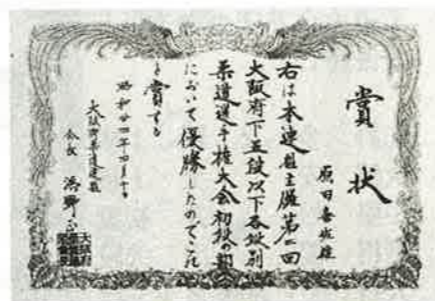 賞状
原田喜蔵殿
右は本連盟主催第一回
大阪府下五段以下各級別
柔道選手権大会初段の部
において優勝したのでこれ
を賞する
昭和廿四年四月十日
大阪府柔道連盟
会長